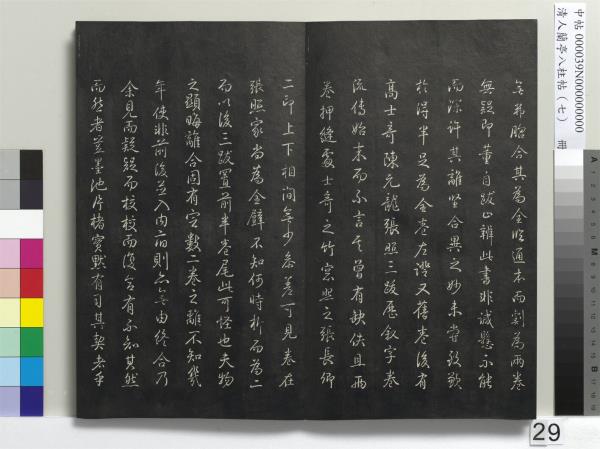 無弗脗合其為全臨通本而割為兩卷
無疑即董自跋止辨此書非誠懸不能
而深許其離堅合異之妙未嘗致歎
於得半足為全卷左證又舊卷後有
高士奇陳元龍張照三跋歷敘字卷
流傳始末而不言其曾有缺佚且兩
卷押縫處士奇之竹窓照之張長卿
二印上下相間無少參差可見卷在
張照家尚為全璧不知何時析而為二
而以後三跋置前半卷尾此可怪也夫物
之顯晦離合固有定數二卷之離不知幾
年使非前後並入內府則亦無由終合乃
余見而疑疑而校校而復合有不知其然
而然者豈墨池片楮實默有司其契者乎
中帖 000039N000000000
清人蘭亭八柱帖（七） 冊
29